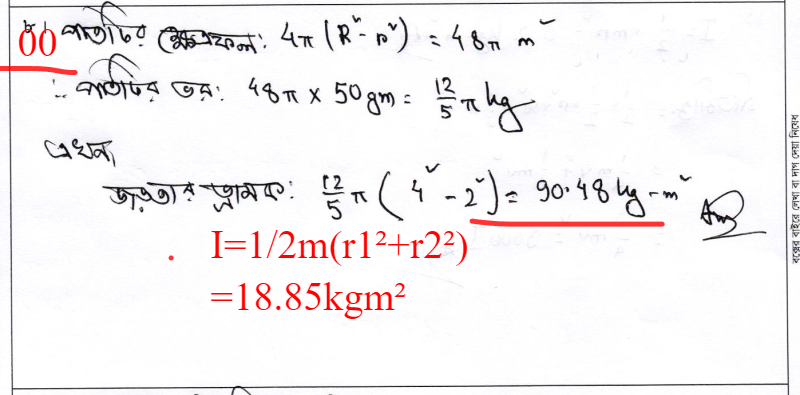 ৮। পাতটির ক্ষেত্রফল: 4π (R² - r²) = 48π m²
00
∴ পাতটির ভর: 48π x 50 gm = 12/5 π kg
এখন,
জড়তার ভ্রামক: 12/5 π (4² - 2²) = 90.48 kg-m² Ans
I=1/2m(r1²+r2²)
=18.85kgm²
বক্সের বাইরে লেখা বা দাগ দেয়া নিষেধ